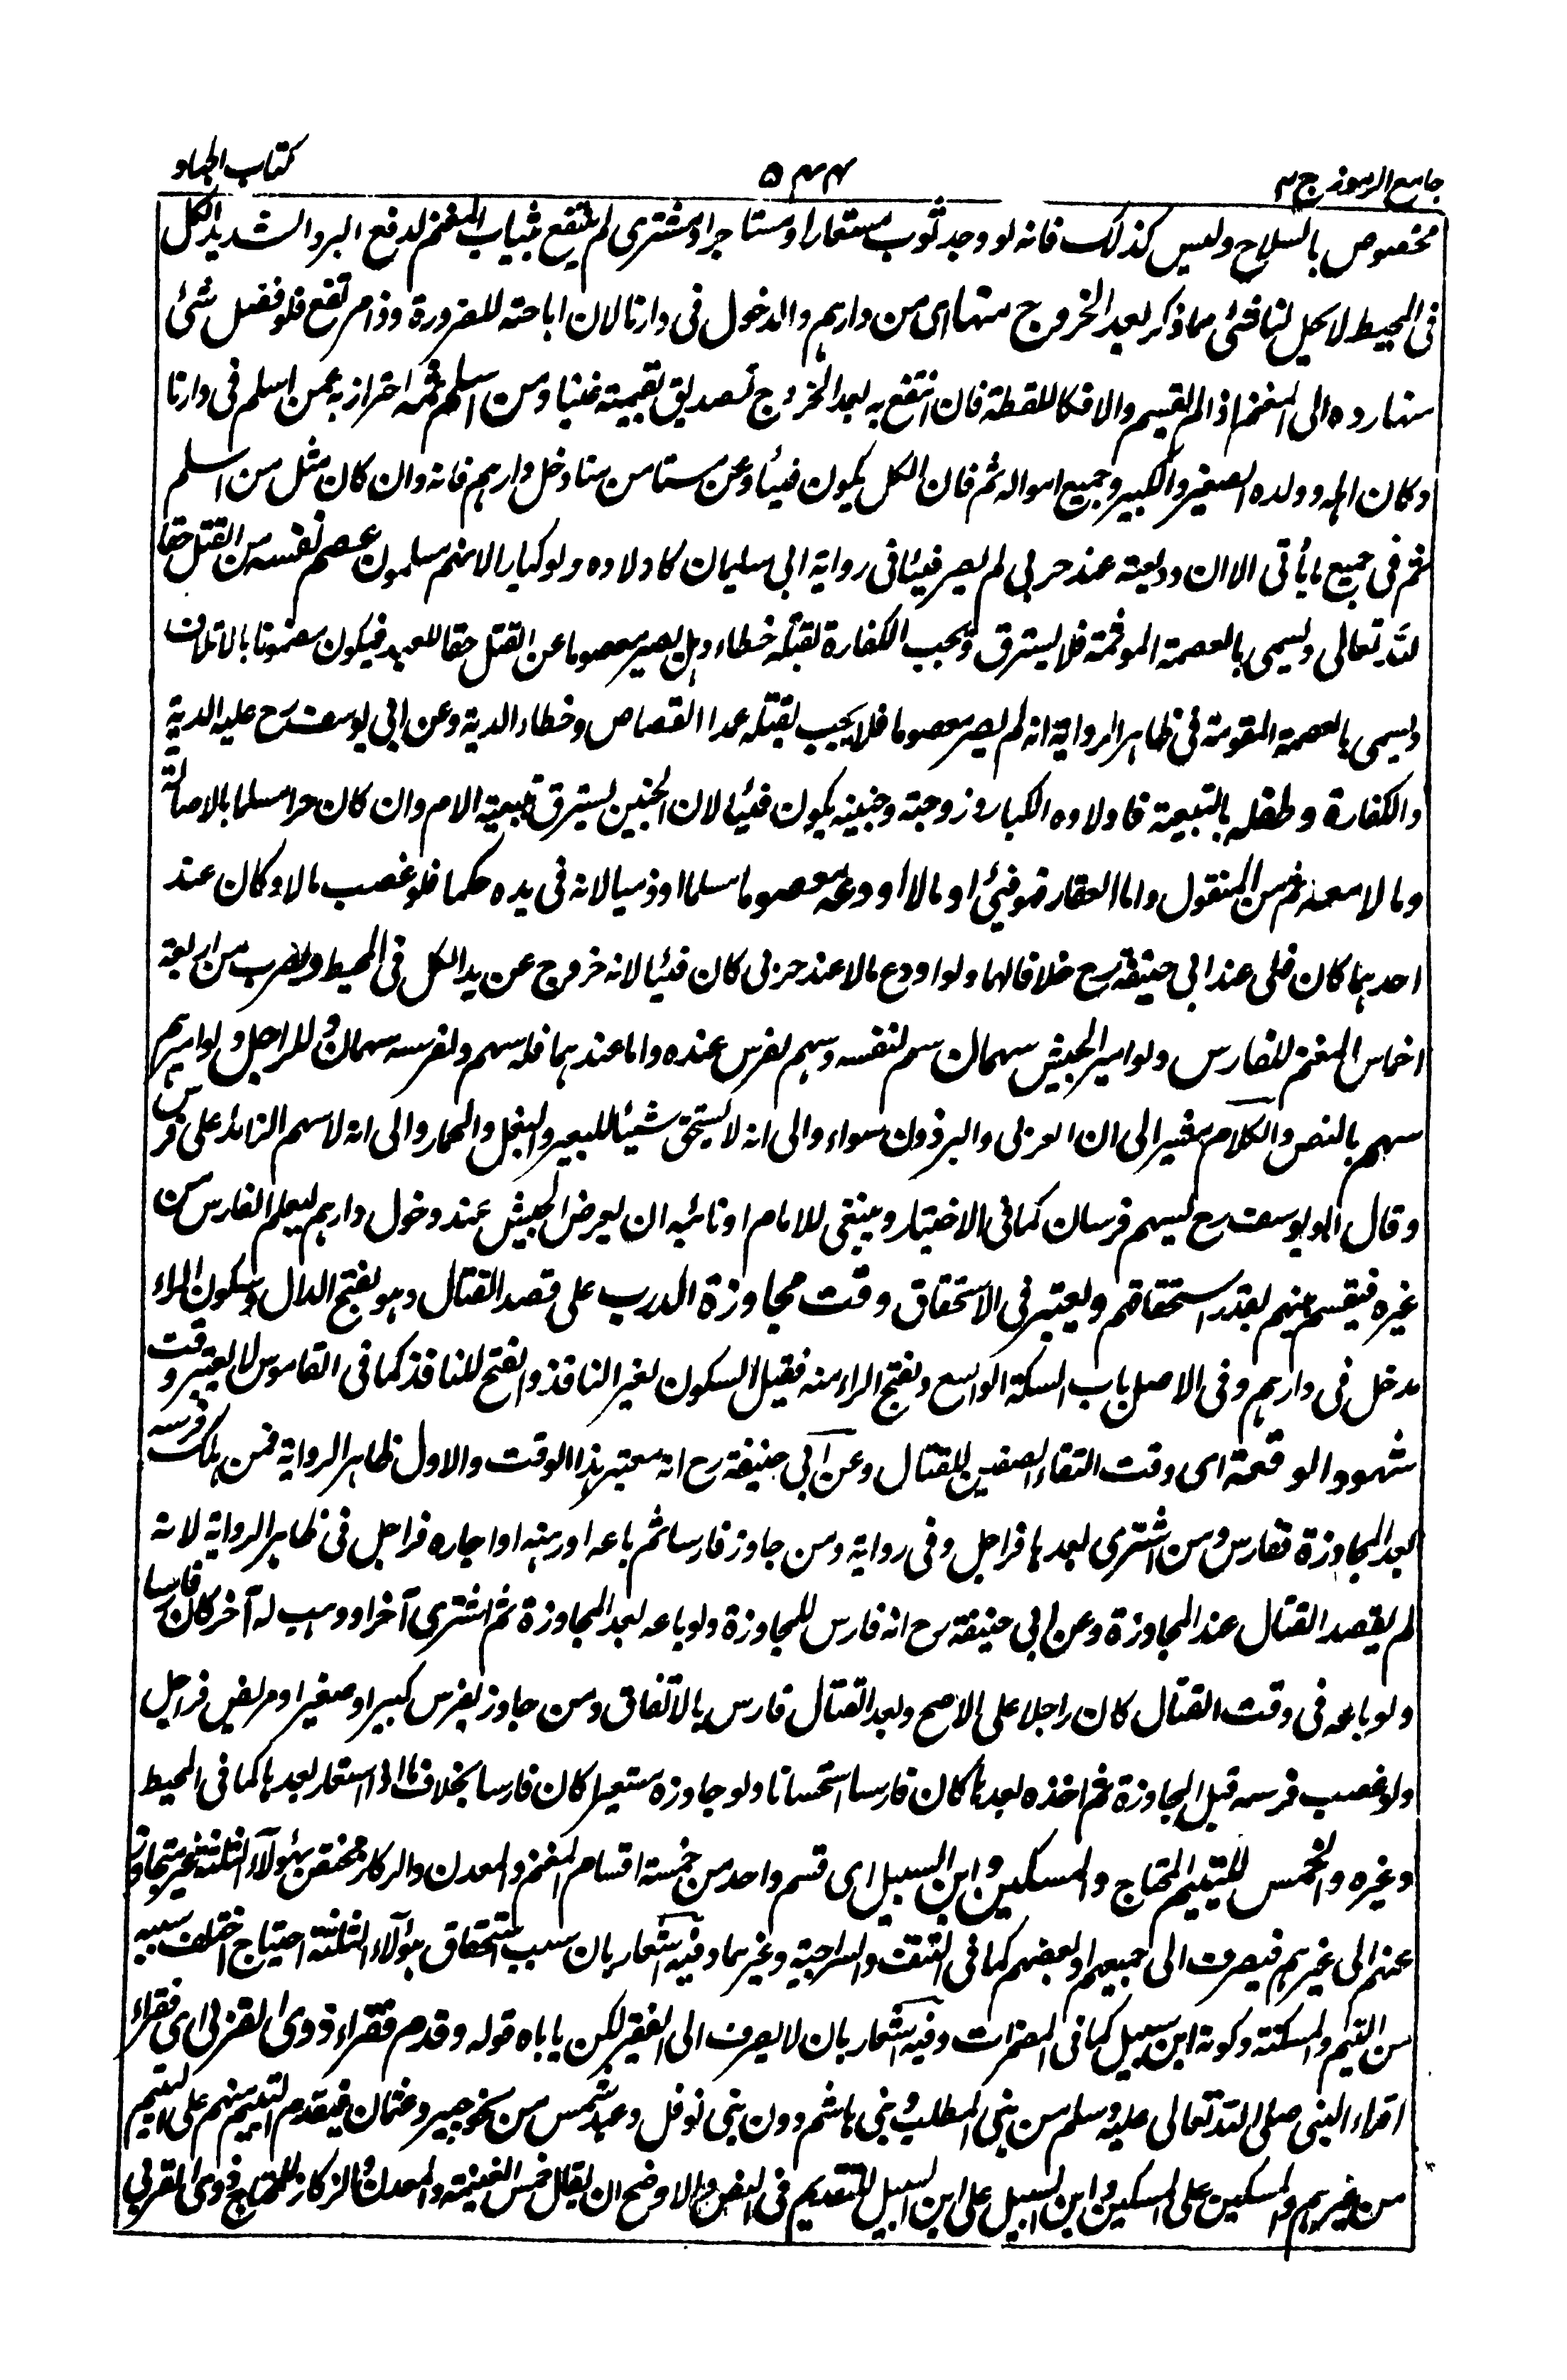 جامع الرموز ج ٢
٥٤٤
كتاب الجهاد
مخصوص بالسلاح وليس كذلك فانه لو وجد ثوب مستعار او مستاجر او مشترى لم ينتفع بثياب المغنم لدفع البرد الشديد الكل
فى المحيط لا يحل لنا شئ مما ذكر بعد الخروج منها اى من دارهم والدخول فى دارنا لان اباحته للضرورة وذا مرتفع فلو فضل شئ
منها رده الى المغنم اذا لم يقسم والا فكاللقطة فان انتفع به بعد الخروج تصديق بقيمته غنيا ومن اسلم ثمه احتراز به عمن اسلم فى دارنا
وكان اهله وولده الصغير والكبير وجميع امواله ثم فان الكل يكون فيئا وعن مستامن منا دخل دارهم فانه وان كان مثل من اسلم
ثم فى جميع ما يأتى الا ان وديعته عند حربى لم يصر فيئا فى رواية ابى سليمان كاولاده ولو كبارا لانهم مسلمون عصم نفسه من القتل حقا
لله تعالى ويسمى بالعصمة الموثمة فلا يسترق وتجب الكفارة بقتله خطاء وهل يصير معصوما عن القتل حقا للعبد فيكون مضمونا بالاتلاف
ويسمى بالعصمة المقومة ففى ظاهر الرواية انه لم يصر معصوما فلا يجب بقتله عمدا القصاص وخطاء الدية وعن ابى يوسف رح عليه الدية
والكفارة وطفله بالتبعية فاولاده الكبار وزوجته وجنينه يكون فيئا لان الجنين يسترق بتبعية الام وان كان حرا مسلما بالاصالة
ومالا معه ثم من المنقول واما العقار فهو فيئ او مالا اودعه معصوما مسلما او ذميا لانه فى يده حكما فلو غصب مالا وكان عند
احدهما كان فلى عند ابى حنيفة رح خلافا لهما ولو اودع مالا عند حربى كان فيئا لانه خروج عن يد الكل فى المحيط ويضرب من اربعة
اخماس المغنم للفارس ولو امير الجيش سهمان سهم لنفسه وسهم لفرس عنده واما عندهما فله سهم ولفرسه سهمان وللراجل ولو اميرهم
سهم بالنص والكلام مشير الى ان العربى والبرذون سواء والى انه لا يستحق شيئا للبعير والبغل والحمار والى انه لا سهم الزائد على فرس
وقال ابو يوسف رح ليسهم فرسان كما فى الاختيار وينبغى للامام او نائبه ان يعرض الجيش عند دخول دارهم ليعلم الفارس من
غيره فيقسم بينهم بقدر استحقاقهم ويعتبر فى الاستحقاق وقت مجاوزة الدرب على قصد القتال وهو بفتح الدال وسكون الراء
مدخل فى دارهم وفى الاصل باب السكة الواسع وبفتح الراء منه فقيل السكون لغير النافذ والفتح للنافذ كما فى القاموس لا يعتبر وقت
شهود الوقعة اى وقت التقاء الصفين للقتال وعن ابى حنيفة رح انه معتبر هذا الوقت والاول ظاهر الرواية فمن هلك فرسه
بعد المجاوزة ففارس ومن اشترى بعدها فراجل وفى رواية ومن جاوز فارسا ثم باعه او رهنه او اجاره فراجل فى ظاهر الرواية لانه
لم يقصد القتال عند المجاوزة وعن ابى حنيفة رح انه فارس للمجاوزة ولو باعه بعد المجاوزة ثم اشترى آخر او وهب له آخر كان فارسا
ولو باعه فى وقت القتال كان راجلا على الاصح وبعد القتال فارس بالاتفاق ومن جاوز بفرس كبير او صغير او مريض فراجل
ولو غصب فرسه قبل المجاوزة ثم اخذه بعدها كان فارسا استحسانا ولو جاوزه مستعير كان فارسا بخلاف ما اذا استعار بعدها كما فى المحيط
وغيره والخمس لليتيم المحتاج والمسكين وابن السبيل اى قسم واحد من خمسة اقسام المغنم والمعدن والركاز مختص بهؤلاء الثلثة غير متجاوز
عنهم الى غيرهم فيصرف الى جميعهم او بعضهم كما فى النتف والسراجية وغيرهما وفيه اشعار بان سبب استحقاق هؤلاء الثلثة احتياج اختلف سببه
من اليتيم والمسكنة وكونه ابن سبيل كما فى المضمرات وفيه اشعار بان لا يصرف الى الفقير لكن ياباه قوله وقدم فقراء ذوى القربى اى فقراء
اقرباء النبى صلى الله تعالى عليه وسلم من بنى المطلب وبنى هاشم دون بنى نوفل وعبد شمس من نحو جبير وعثمان فيقدم اليتيم منهم على اليتيم
من غيرهم والمسكين على المسكين وابن السبيل على ابن السبيل للتقديم فى النص والاوضح ان يقال خمس الغنيمة والمعدن والركاز للمحتاج ذوى القربى